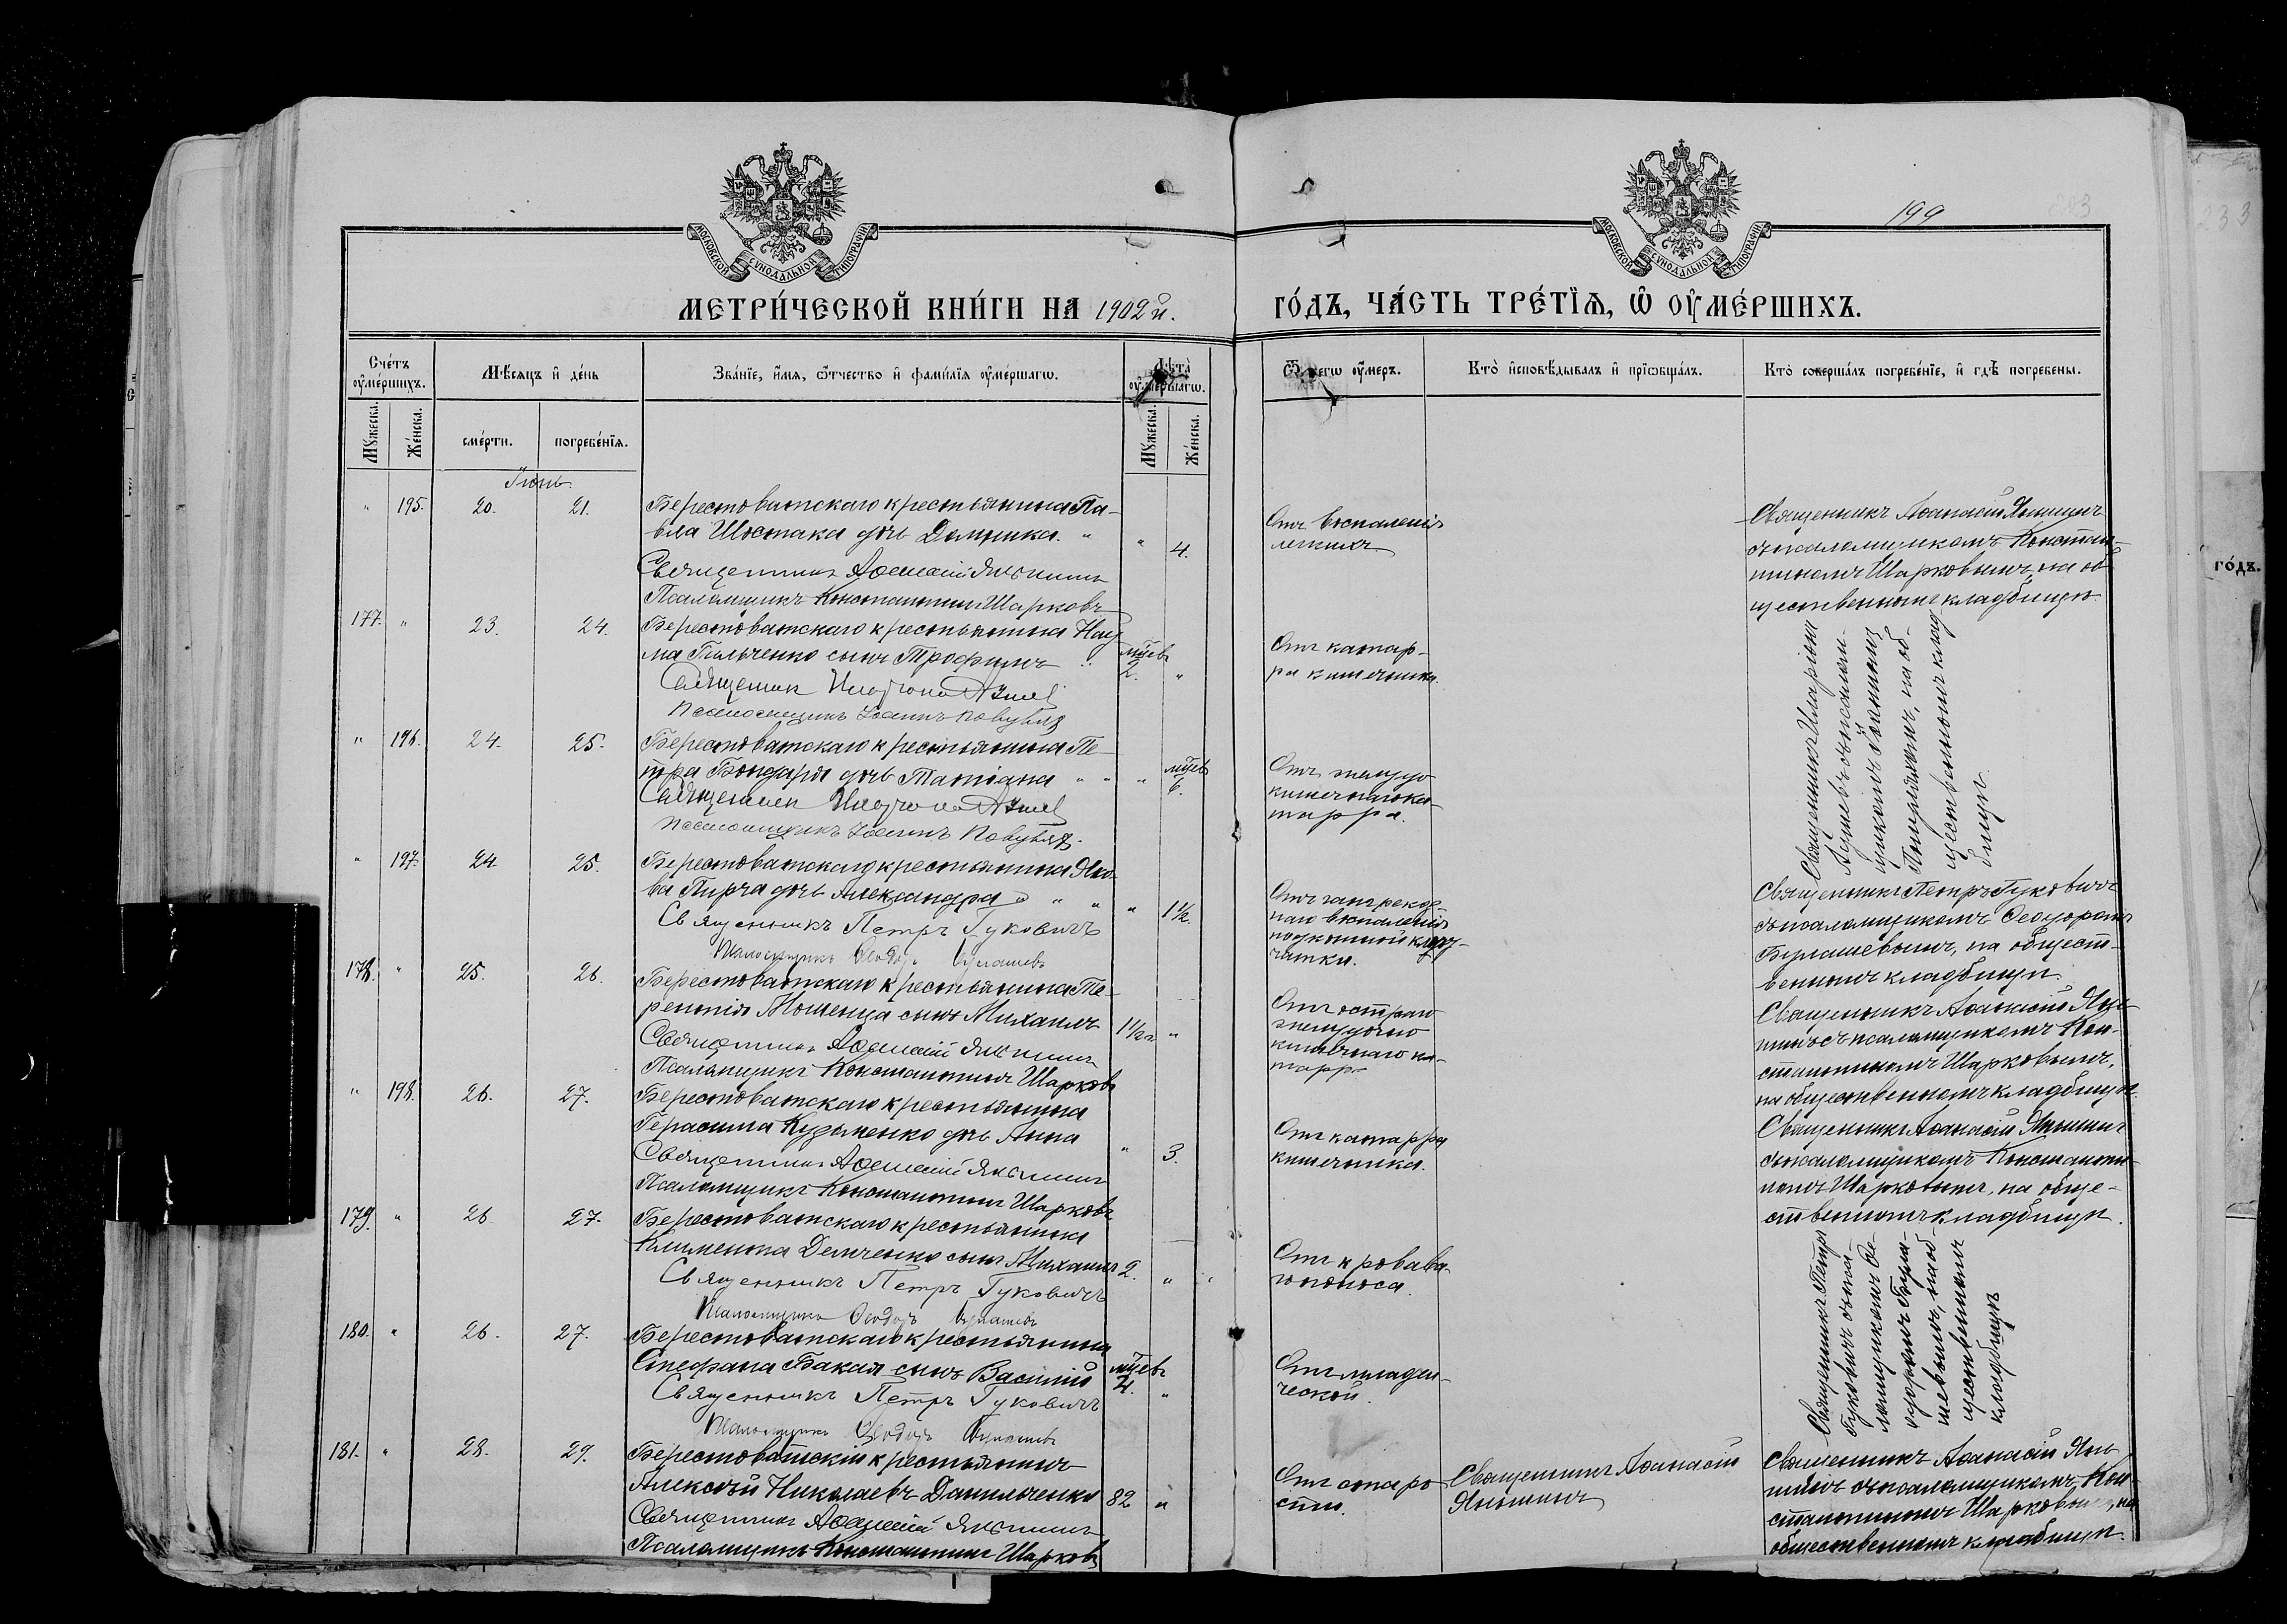 199
МОСКОВСКОЙ СУНОДАЛЬНОЙ ТИПОГРАФІИ
МОСКОВСКОЙ СУНОДАЛЬНОЙ ТИПОГРАФІИ
МЕТРИ́ЧЕСКОЙ КНИ́ГИ НА 1902й.
ГО́ДЪ, ЧА́СТЬ ТРЕ́ТІЯ, Ѡ ОУМЕ́РШИХЪ.
Сче́тъ оуме́ршихъ.
Мѣ́сяцъ и де́нь
Зва́нїе, и́мя, ѻ҆́тчество и фами́лїя оуме́ршагѡ.
Лѣта̀ оуме́ршагѡ.
Ѿ чегѡ оу́меръ.
Кто̀ и҆сповѣ́дывалъ и прїѡбща́лъ.
Кто̀ соверша́лъ погребе́нїе, и гдѣ̀ погребены.
Мꙋжеска.
Же́нска.
сме́рти.
погребе́нїя.
Мꙋжеска.
Же́нска.
Іюнь.
" 195. 20. 21.
Берестоватскаго крестьянина Па-
вла Шостака дочь Домника. " " 4.
Священникъ Аѳанасій Яньшинъ
Псаломщикъ Константинъ Шарковъ
Отъ воспаленія
легкихъ
Священникъ Аѳанасій Яньшинъ
съ псаломщикомъ Констан-
тиномъ Шарковымъ, на об-
щественномъ кладбищѣ.
177. " 23. 24.
Берестоватскаго крестьянина Нау
ма Пильченко сынъ Трофимъ " мцев 2. "
Священник
Псаломщикъ Іоаннъ
Отъ катар-
ра кишечника.
Священникъ Иларіонъ
съ псалом-
щикомъ Іоанномъ
на об-
щественномъ клад
бищѣ.
" 196. 24. 25.
Берестоватскаго крестьянина Пе-
тра Бондаря дочь Татіана " " " мцев 6.
Священник
Псаломщикъ Іоаннъ
Отъ желудо
кишечнаго ка-
тарра.
" 197. 24 25.
Берестоватскаго крестьянина Яко-
ва Пирча дочь Александра " " " 1½
Священникъ Петръ Гуковичъ
Псаломщикъ Ѳеодоръ Булашевъ
Отъ гангреноз-
наго воспаленія
подкожной клѣт-
чатки.
Священникъ Петръ Гуковичъ
съ псаломщикомъ Ѳеодоромъ
Булашевымъ, на общест-
венномъ кладбищѣ.
178. " 25. 26.
Берестоватскаго крестьянина Те-
рентія Мошенца сынъ Михаилъ 1½г. "
Священникъ Аѳанасій Яньшинъ
Псаломщикъ Константинъ Шарковъ
Отъ остраго
желудочно
кишечнаго ка-
тарра
Священникъ Аѳанасій Янь-
шинъ съ псаломщикомъ Кон-
стантиномъ Шарковымъ,
на общественномъ кладбищѣ.
" 198. 26. 27.
Берестоватскаго крестьянина
Герасима Кузьменко дочь Анна " 3.
Священникъ Аѳанасій Яньшинъ
Псаломщикъ Константинъ Шарковъ
Отъ катарра
кишечника.
Священникъ Аѳанасій Яньшинъ
съ псаломщикомъ Константи-
номъ Шарковымъ, на обще-
ственномъ кладбищѣ.
179. " 26 27.
Берестоватскаго крестьянина
Климента Демченко сынъ Михаилъ 2. "
Священникъ Петръ Гуковичъ
Псаломщикъ Ѳеодоръ Булашевъ
Отъ кровава-
го поноса.
Священникъ Петръ
Гуковичъ съ пса-
ломщикомъ Ѳе-
одоромъ Була-
шевымъ, на об-
щественномъ
кладбищѣ
180. " 26. 27.
Берестоватскаго крестьянина
Стефана Бакая сынъ Василій мцевъ 4. "
Священникъ Петръ Гуковичъ
Псаломщикъ Ѳеодоръ Булашевъ
Отъ младен-
ческой.
181. " 28. 29.
Берестоватскій крестьянинъ
Алексѣй Николаевъ Данильченко 82 "
Священникъ Аѳанасій Яньшинъ
Псаломщикъ Константинъ Шарковъ
Отъ старо
сти.
Священникъ Аѳанасій
Яньшинъ
Священникъ Аѳанасій Янь
шинъ съ псаломщикомъ Кон
стантиномъ Шарковымъ, на
общественномъ кладбищѣ.
го́дъ.